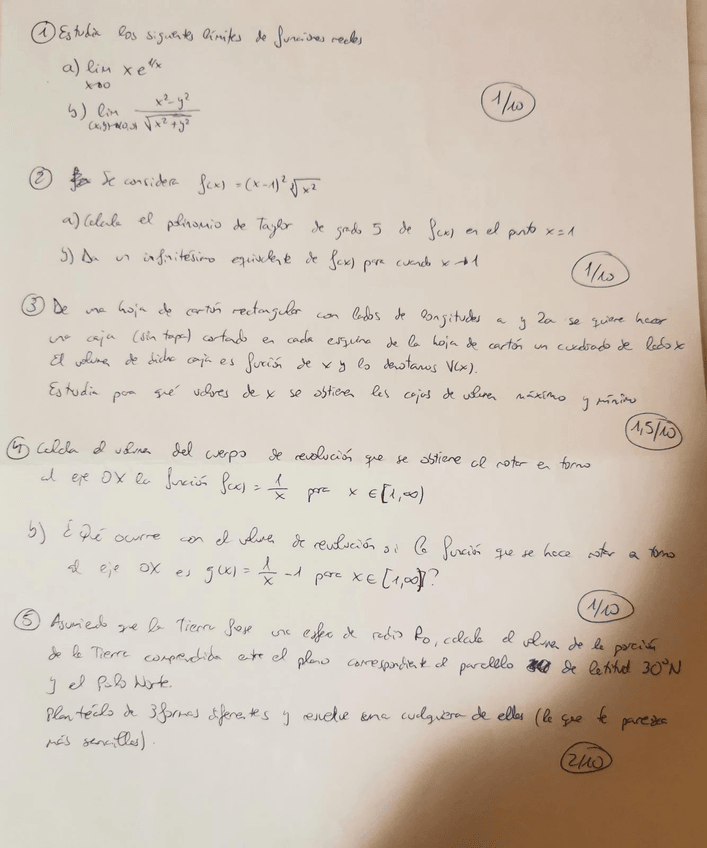 ① Estudia los siguientes límites de funciones reales
a) lim x→0 x e^{1/x}
b) lim (x,y)→(0,0) x²-y² / √(x²+y²)
1/10
② Se considera f(x) = (x-1)² √x²
a) Calcula el polinomio de Taylor de grado 5 de f(x) en el punto x=1
b) Da un infinitésimo equivalente de f(x) para cuando x→1
1/10
③ De una hoja de cartón rectangular con lados de longitudes a y 2a se quiere hacer
una caja (sin tapa) cortado en cada esquina de la hoja de cartón un cuadrado de lado x
El volumen de dicha caja es función de x y lo denotamos V(x).
Estudia para qué valores de x se obtienen las cajas de volumen máximo y mínimo
1,5/10
④ Calcula el volumen del cuerpo de revolución que se obtiene al rotar en torno
al eje OX la función f(x) = 1/x para x ∈ [1,∞)
b) ¿Qué ocurre con el volumen de revolución si la función que se hace rotar a torno
al eje OX es g(x) = 1/x - 1 para x ∈ [1,∞)?
1/10
⑤ Asumiendo que la Tierra fuese una esfera de radio R₀, calcula el volumen de la porción
de la Tierra comprendida entre el plano correspondiente al paralelo de latitud 30°N
y el Polo Norte.
Plantéalo de 3 formas diferentes y resuelve una cualquiera de ellas (la que te parezca
más sencilla).
2/10